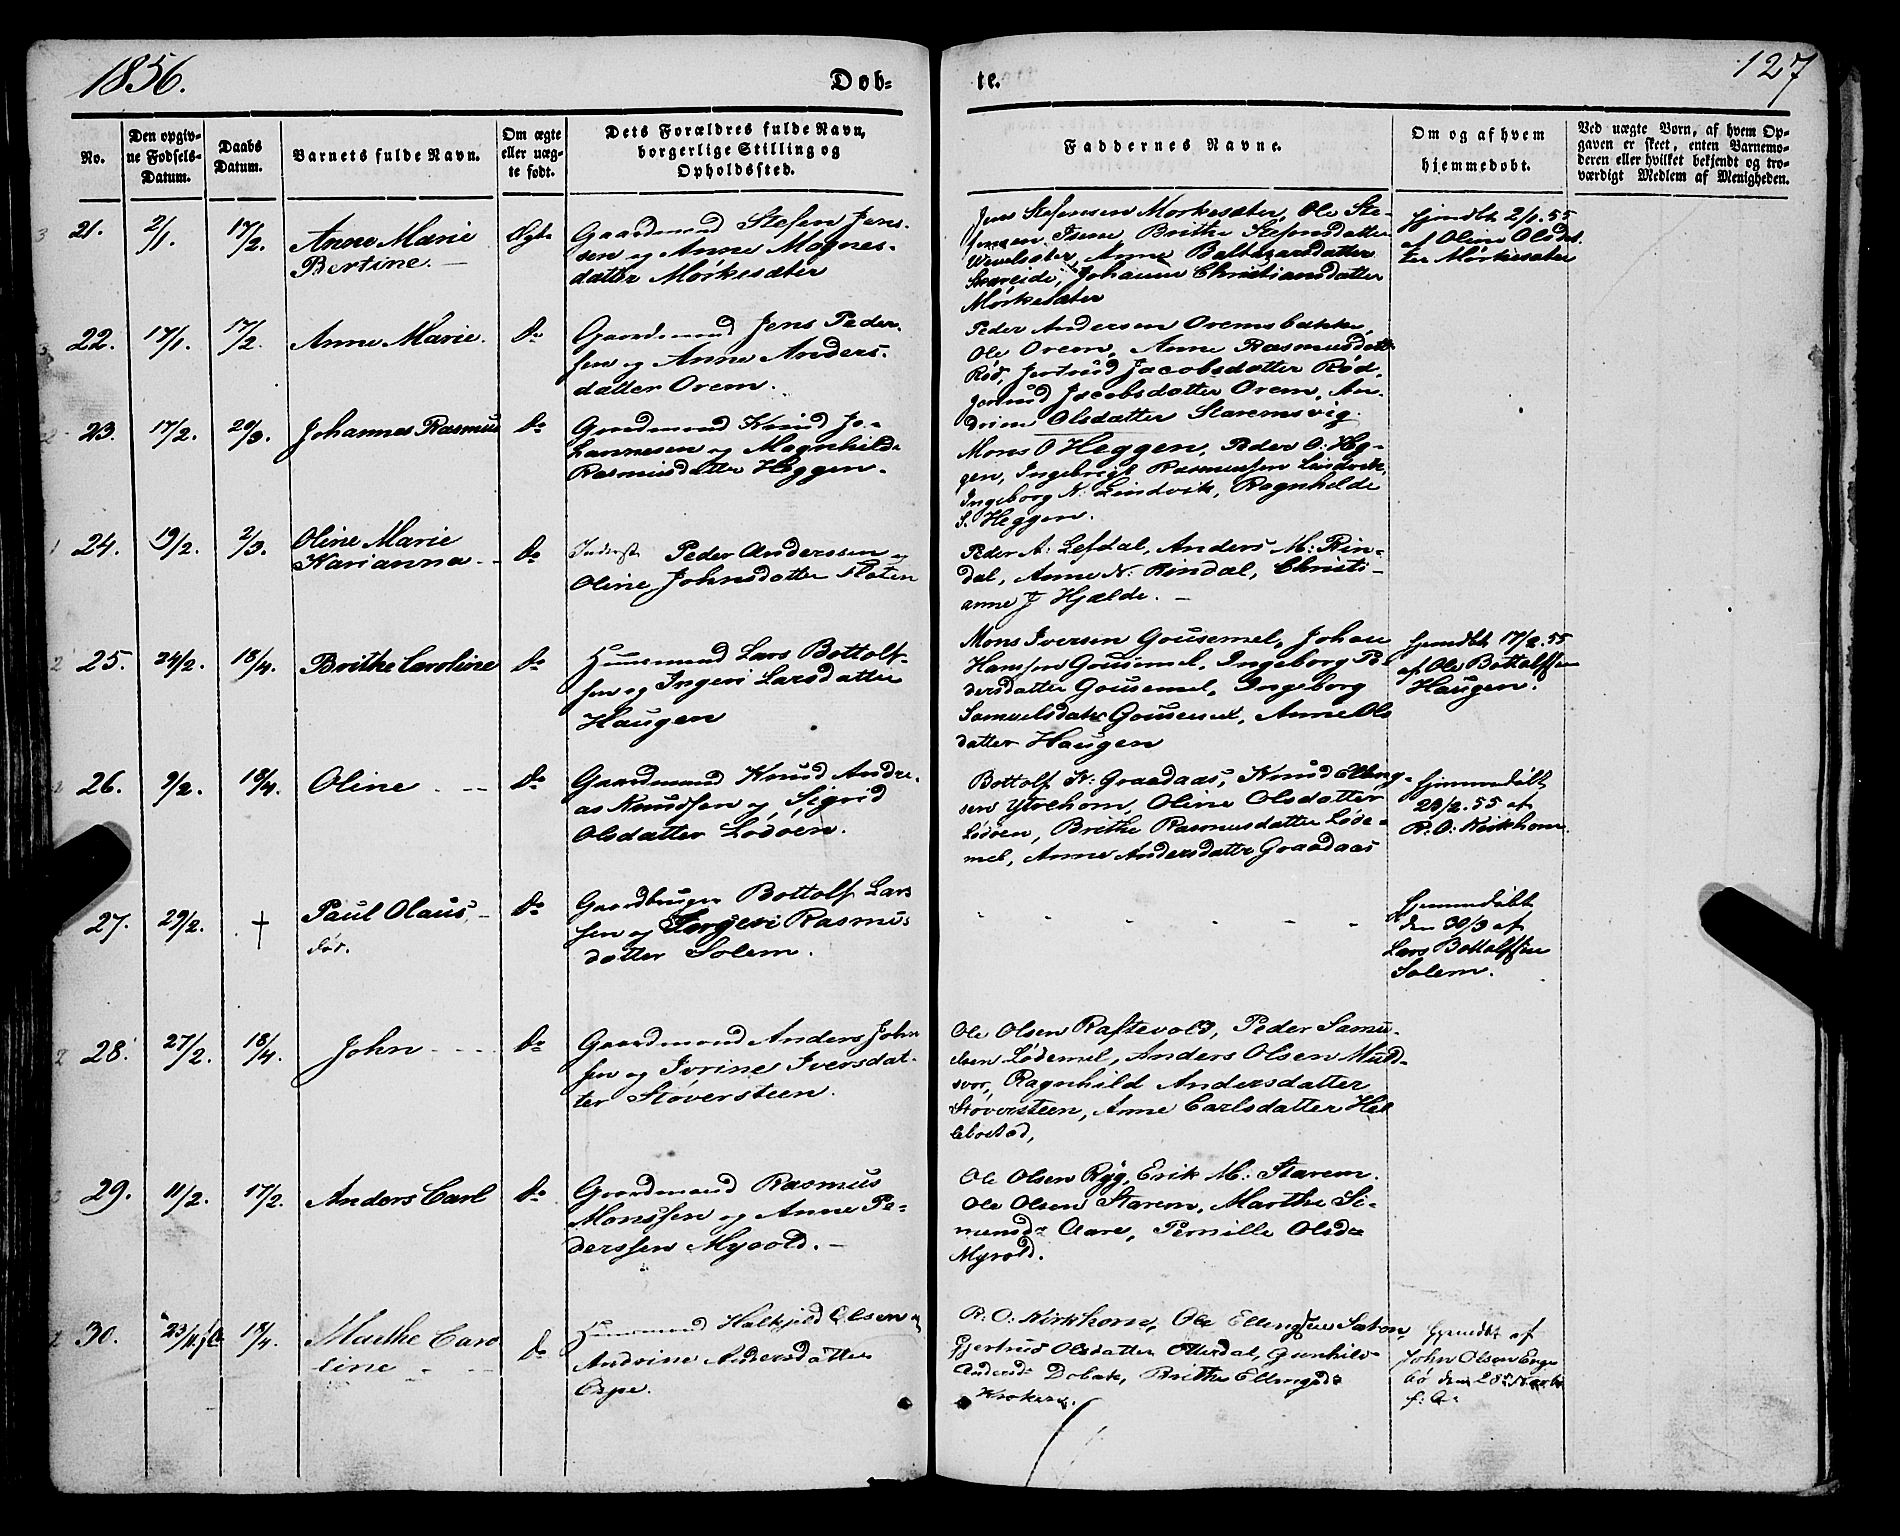 1856.
Døb-
te.
127
No.
Den opgiv-
ne Fødsels-
Datum.
Daabs
Datum.
Barnets fulde Navn.
Om ægte
eller uæg-
te født.
Dets Forældres fulde Navn,
borgerlige Stilling og
Opholdssted.
Faddernes Navne.
Om og af hvem
hjemmedøbt.
Ved uægte Børn, af hvem Op-
gaven er skeet, enten Barnemo-
deren eller hvilket bekjendt og tro-
værdigt Medlem af Menigheden.
21.
2/1.
17/2.
Anne Marie
Bertine.
Ægte
Gaardmand Stefen Jens-
sen og Anne Magnes-
datter Mørkesæter
Jens Stefensen Morkesæter, Ole Ste-
Brithe Stefensdatter
Anne Balthazarsdatter
Johanne Christiansdatter
Mørkesæter
hjmdbt 2/1. 55
af Oline Olsdat
ter Mørkesæter
22.
17/1.
17/2.
Anne Marie.
do
Gaardmand Jens Peder-
sen og Anne Anders-
datter Orem.
Peder Andersen Oremsbakke,
Ole Orem, Anne Rasmusdatt:
Rød, Jertrud Jacobsdatter Rød.
Jertrud Jacobsdatter Orem, An-
drine Olsdatter Staremsvig.
23.
17/2.
20/3.
Johannes Rasmus
do
Gaardmand Knud Jo-
hannesen og Magnhilde
Rasmusdatter Heggen.
Mons O Heggen, Peder O: Heg-
gen, Ingebrigt Rasmussen Lindvik,
Ingeborg N: Lindvik, Ragnhilde
S. Heggen.
24.
19/2.
2/3.
Oline Marie
Karianna
do
Inderst Peder Anderssen og
Oline Johnsdatter Floten
Peder A: Lefdal, Anders M: Rin-
dal, Anne N: Rindal, Christi-
anne J Hjælde.
25.
24/2.
18/4.
Brithe Caroline
do
Huusmand Lars Bottolf-
sen og Ingeri Larsdatter
Haugen
Mons Iversen Gousemel, Johan
Hanssen Gousemel, Ingeborg Pe-
dersdatter Gousemel, Ingeborg
Samuelsdatr Gousemel, Anne Ols
datter Haugen
hjemdbt 17/2. 55
af Ole Bottolfsen
Haugen.
26.
9/2.
18/4.
Oline
do
Gaardmand Knud Andre-
as Knudsen og Sigrid
Olsdatter Lødøen.
Bottolf N: Graadaas, Knud Elling-
sen Ytrehorn, Oline Olsdatter
Lødøen, Brithe Rasmusdatter Løde-
mel, Anne Andersdatter Graadaas
hjemmedøbt
29/2. 55 af
R. O: Kirkhorn.
27.
29/2.
†
Paul Olaus,
død.
do
Gaardbruger Bottolf Lars
sen og Ingeri Rasmus
datter Solem.
hjemmedøbt
den 30/3 af
Lars Bottolfsen
Solem.
28.
27/2.
18/4.
John
do
Gaardmand Anders John
sen og Ivrine Iversdat-
ter Støversteen.
Ole Olsen Raftevold, Peder Samu-
elsen Lødemel, Anders Olsen Muld-
svor, Ragnhild Andersdatter
Støversteen, Anne Carlsdatter Hel
lebostad,
29.
11/2.
17/2.
Anders Carl
do
Gaardmand Rasmus
Monssen og Anne Pe-
derssen Myvold.
Ole Olsen Ryg, Erik M: Starem.
Ole Olsen Starem, Marthe Si-
mensdr Aare, Pernille Olsdr
Myvold.
30.
23/11.
18/4.
Marthe Caro
line
do
Huusmand Halkjeld Olsen og
Andrine Andersdatter
Espe.
R. O: Kirkhorn, Ole Ellingsen
Gjertrud Olsdatter Otterdal, Gunhild
Andersdr Dobak, Brithe Ellingsdr
hjemdbt af
John Olsen Enge
bø den 28
f: A: